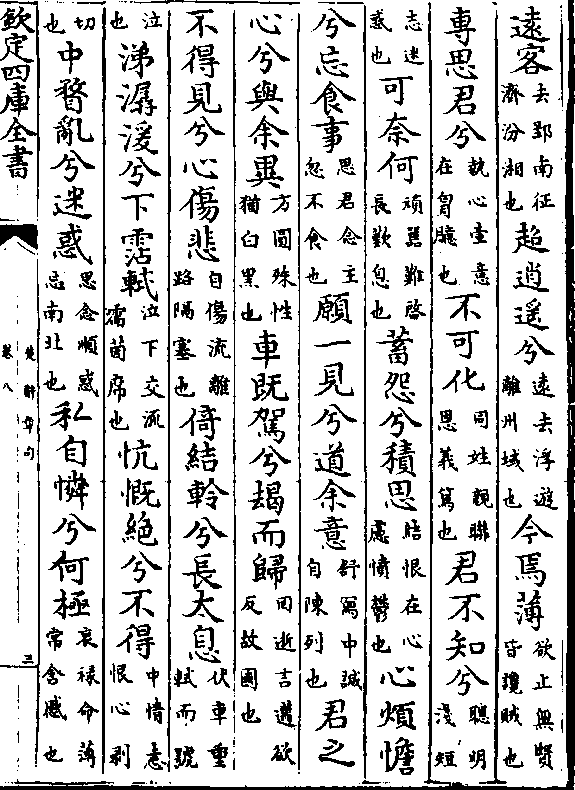 遠客去郢南征濟汾湘也超逍遥兮遠去浮遊離州域也今焉薄欲止無賢皆讒賊也
專思君兮執心壹意在胷臆也不可化同姓親聯恩義篤也君不知兮聰明淺短
志迷惑也可奈何頑嚚難啓長歎息也蓄怨兮積思結恨在心慮憤鬱也心煩憺
兮忘食事思君念主忽不食也願一見兮道余意舒寫中誠自陳列也君之
心兮與余異方圓殊性猶白黑也車既駕兮朅而歸回逝言邁欲反故國也
不得見兮心傷悲自傷流離路隔塞也倚結軨兮長太息伏車重軾而號
泣也涕潺湲兮下霑軾泣下交流濡茵席也忼慨絶兮不得中情恚恨心剥
切也中瞀亂兮迷惑思念煩惑忘南北也私自憐兮何極哀禄命薄常含慼也
欽定四庫全書
楚辭章句
卷八
三